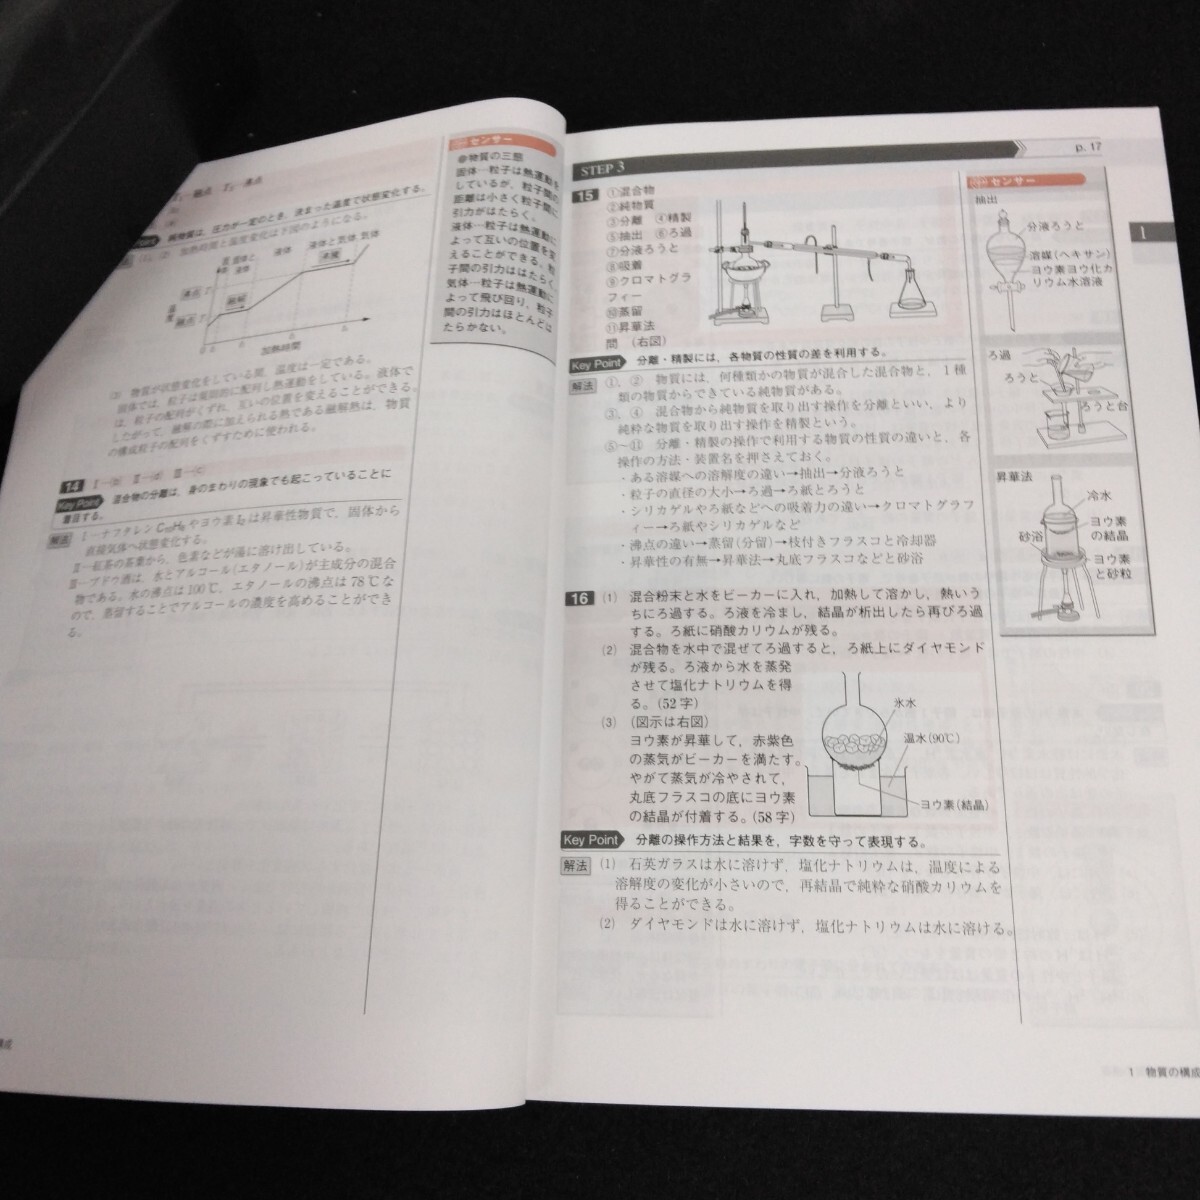 T₁…融点 T₂…沸点
純物質は，圧力が一定のとき，決まった温度で状態変化する。
加熱時間と温度変化は下図のようになる。
液体
液体と気体
気体
沸騰
融解
温度
沸点
融点
加熱時間
(3) 物質が状態変化をしている間，温度は一定である。
固体では，粒子は規則的に配列し熱運動をしている。液体で
は，粒子の配列がくずれ，互いの位置を変えることができる。
したがって，融解の際に加えられる熱である融解熱は，物質
の構成粒子の配列をくずすために使われる。
14 Ⅰ─(b) Ⅱ─(d) Ⅲ─(c)
Key Point 混合物の分離は，身のまわりの現象でも起こっていることに
着目する。
解法 Ⅰ…ナフタレンC₁₀H₈やヨウ素I₂は昇華性物質で，固体から
直接気体へ状態変化する。
Ⅱ…紅茶の茶葉から，色素などが湯に溶け出している。
Ⅲ…ブドウ酒は，水とアルコール(エタノール)が主成分の混合
物である。水の沸点は100℃，エタノールの沸点は78℃な
ので，蒸留することでアルコールの濃度を高めることができ
る。
センサー
●物質の三態
固体…粒子は熱運動を
しているが，粒子間の
距離は小さく粒子間に
引力がはたらく。
液体…粒子は熱運動に
よって互いの位置を変
えることができる。粒
子間の引力ははたらく。
気体…粒子は熱運動に
よって飛び回り，粒子
間の引力はほとんどは
たらかない。
STEP 3
p. 17
15 ①混合物
②純物質
③分離 ④精製
⑤抽出 ⑥ろ過
⑦分液ろうと
⑧吸着
⑨クロマトグラ
フィー
⑩蒸留
⑪昇華法
問 (右図)
Key Point 分離・精製には，各物質の性質の差を利用する。
解法 ①，② 物質には，何種類かの物質が混合した混合物と，1種
類の物質からできている純物質がある。
③，④ 混合物から純物質を取り出す操作を分離といい，より
純粋な物質を取り出す操作を精製という。
⑤～⑪ 分離・精製の操作で利用する物質の性質の違いと，各
操作の方法・装置名を押さえておく。
・ある溶媒への溶解度の違い→抽出→分液ろうと
・粒子の直径の大小→ろ過→ろ紙とろうと
・シリカゲルやろ紙などへの吸着力の違い→クロマトグラフ
ィー→ろ紙やシリカゲルなど
・沸点の違い→蒸留(分留)→枝付きフラスコと冷却器
・昇華性の有無→昇華法→丸底フラスコなどと砂浴
16 (1) 混合粉末と水をビーカーに入れ，加熱して溶かし，熱いう
ちにろ過する。ろ液を冷まし，結晶が析出したら再びろ過
する。ろ紙に硝酸カリウムが残る。
(2) 混合物を水中で混ぜてろ過すると，ろ紙上にダイヤモンド
が残る。ろ液から水を蒸発
させて塩化ナトリウムを得
る。(52字)
(3) (図示は右図)
ヨウ素が昇華して，赤紫色
の蒸気がビーカーを満たす。
やがて蒸気が冷やされて，
丸底フラスコの底にヨウ素
の結晶が付着する。(58字)
氷水
温水(90℃)
ヨウ素(結晶)
Key Point 分離の操作方法と結果を，字数を守って表現する。
解法 (1) 石英ガラスは水に溶けず，塩化ナトリウムは，温度による
溶解度の変化が小さいので，再結晶で純粋な硝酸カリウムを
得ることができる。
(2) ダイヤモンドは水に溶けず，塩化ナトリウムは水に溶ける。
センサー
抽出
分液ろうと
溶媒(ヘキサン)
ヨウ素ヨウ化カ
リウム水溶液
ろ過
ろうと
ろうと台
昇華法
冷水
ヨウ素
の結晶
砂浴
ヨウ素
と砂粒
1
1 物質の構成